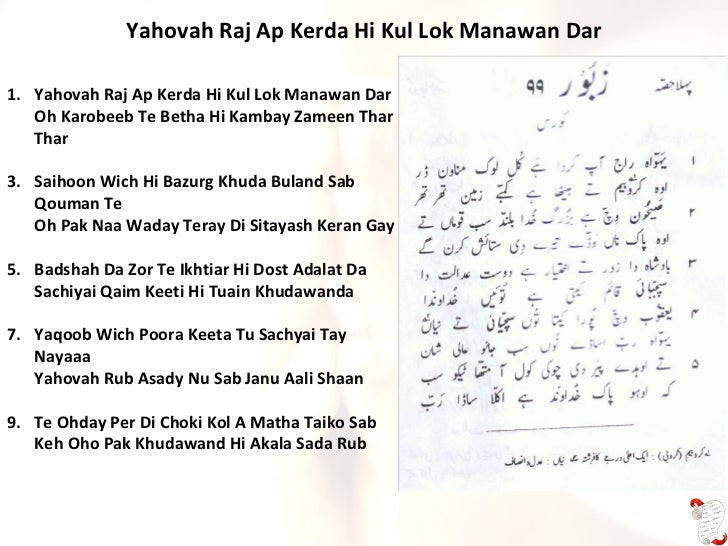 Yahovah Raj Ap Kerda Hi Kul Lok Manawan Dar
1. Yahovah Raj Ap Kerda Hi Kul Lok Manawan Dar
Oh Karobeeb Te Betha Hi Kambay Zameen Thar
Thar
3. Saihoon Wich Hi Bazurg Khuda Buland Sab
Qouman Te
Oh Pak Naa Waday Teray Di Sitayash Keran Gay
5. Badshah Da Zor Te Ikhtiar Hi Dost Adalat Da
Sachiyai Qaim Keeti Hi Tuain Khudawanda
7. Yaqoob Wich Poora Keeta Tu Sachyai Tay
Nayaaa
Yahovah Rub Asady Nu Sab Janu Aali Shaan
9. Te Ohday Per Di Choki Kol A Matha Taiko Sab
Keh Oho Pak Khudawand Hi Akala Sada Rub
پہلا حصّہ زبُور ۹۹
کورس
۱ یہوواہ راج آپ کردا ہے کُل لوک مناون ڈر
اوہ کروبیم تے بیٹھا ہے کمبے زمین تھر تھر
۲ صیحُون وِچ ہے بزرگ خُدا بلند سب قوماں تے
اوہ پاک ناں وڈّے تیرے دِی ستائش کرن گے
۳ بادشاہ دا زور تے اختیار ہے دوست عدالت دا
سچیائی قائم کیتی ہے تُوئیں خُداوندا
۴ یعقوب وِچ پُورا کیتا تُوں سچیائی تے نیاں
یہوواہ ربّ اساڈے نُوں سب جانو عالی شان
۵ تے اوہدے پیر دِی چوکی کول آ متھا ٹیکو سب
کہ اوہو پاک خُداوند ہے اکلّا ساڈا ربّ